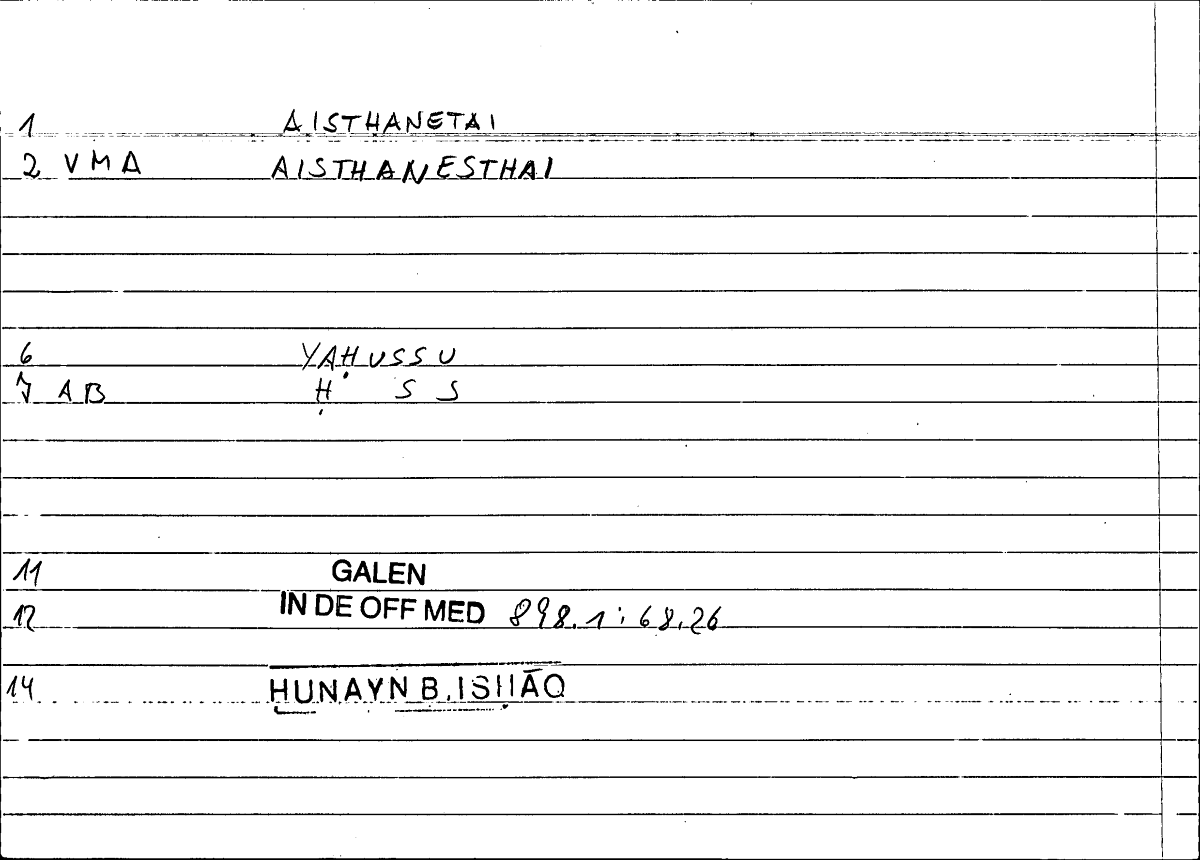 1 AISTHANETAI
2 VMA AISTHANESTHAI
6 YAḤUSSU
7 AB Ḥ S S
11 GALEN
12 IN DE OFF MED 898.1; 68.26
14 HUNAYN B. ISḤĀQ